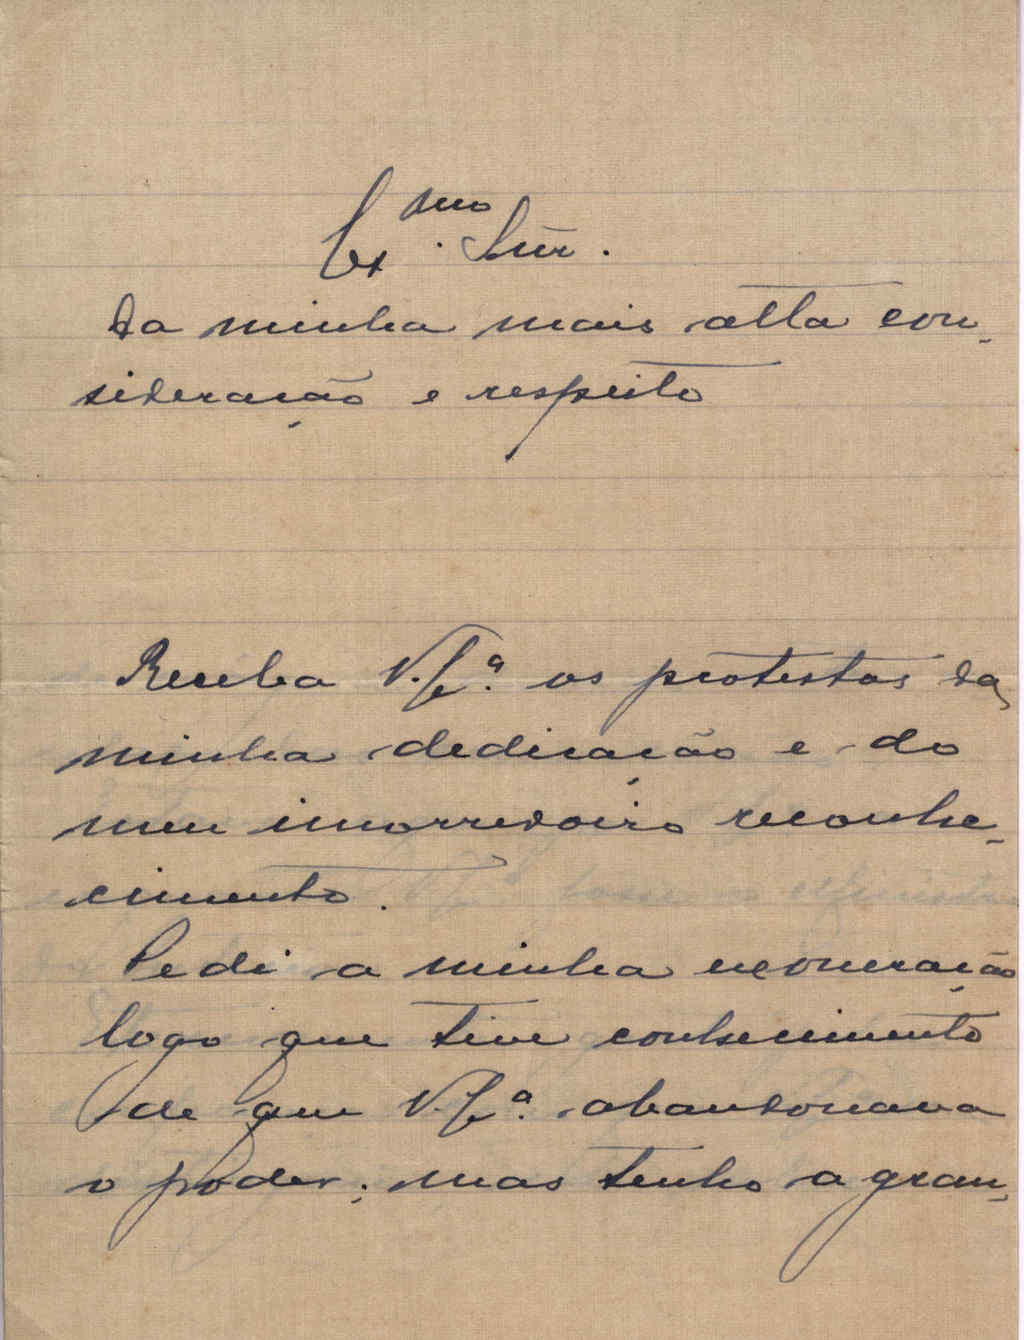 Ex.mo Snr.
Da minha mais alta con-
sideração e respeito
Receba V. Ex.ª os protestos da
minha dedicação e do
meu imorredoiro reconhe-
cimento.
Pedi a minha exoneração
logo que tive conhecimento
de que V. Ex.ª abandonava
o poder; mas tenho a gran-